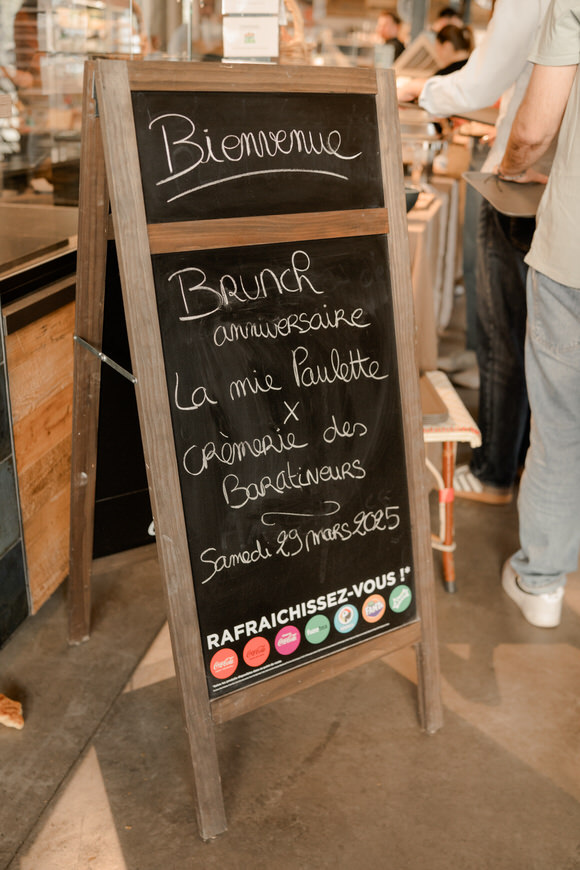 Bienvenue
Brunch
anniversaire
La mie Paulette
x
Crèmerie des
Baratineurs
Samedi 29 mars 2025
RAFRAICHISSEZ-VOUS !*
Coca-Cola
Coca-Cola
Coca-Cola
fuzetea
FANTA